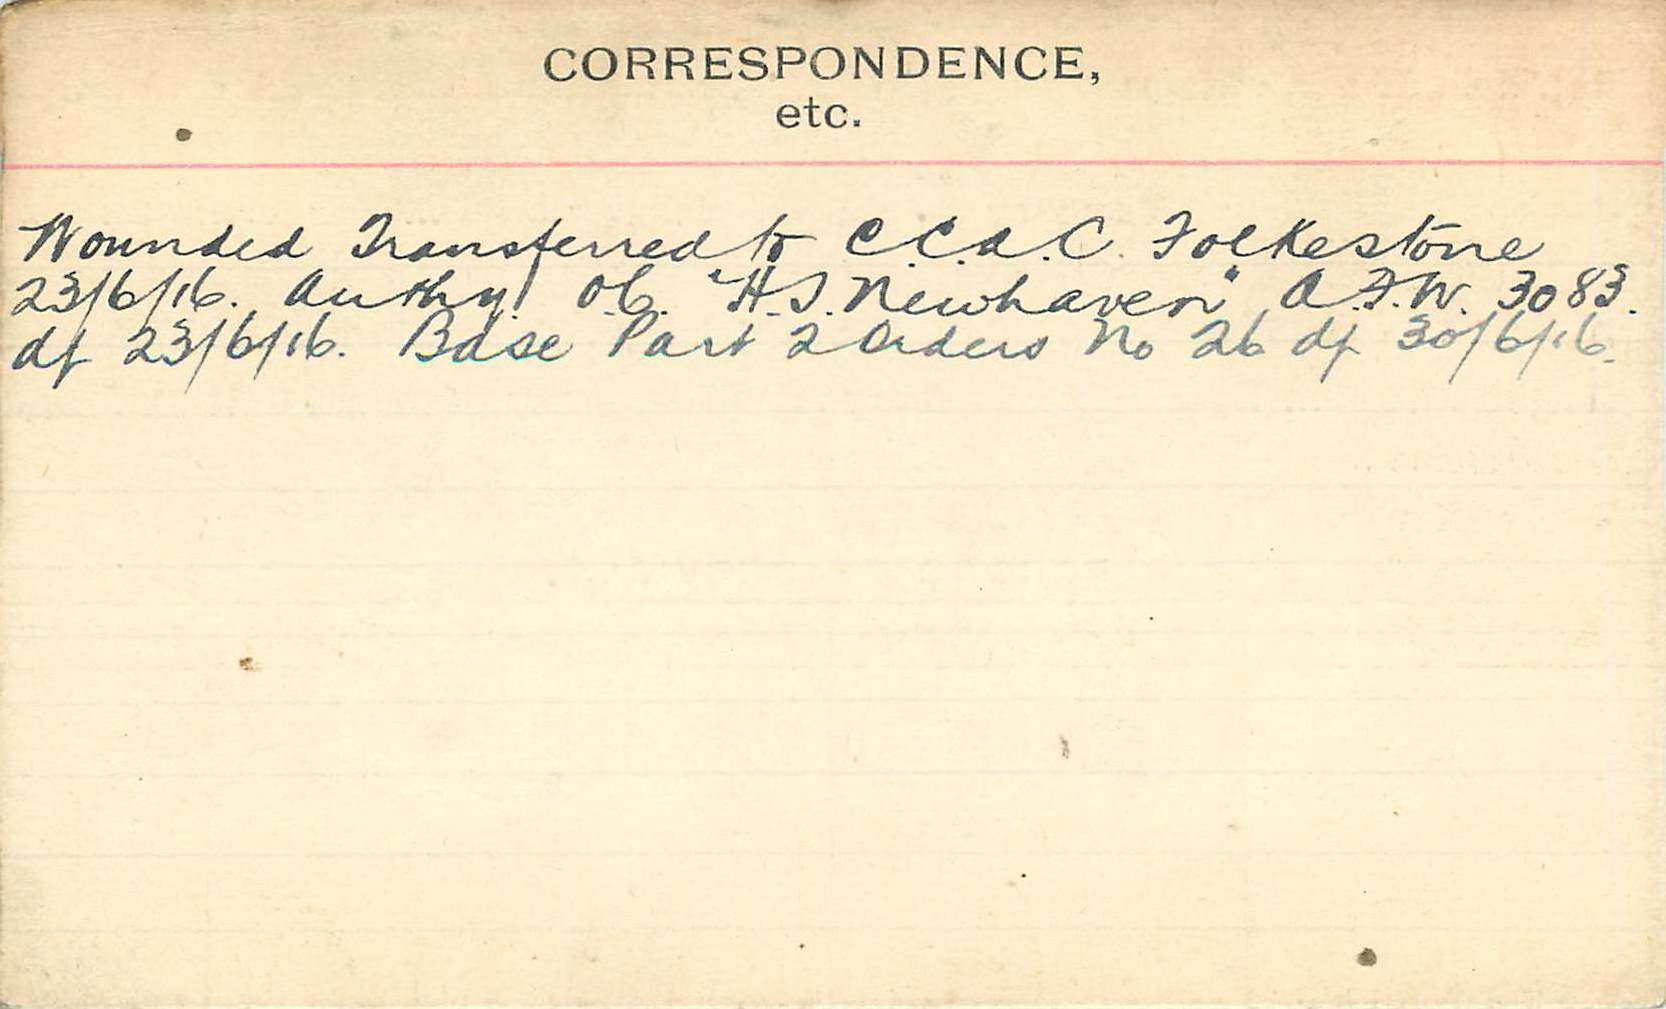 CORRESPONDENCE,
etc.
Wounded Transferred to C.C.A.C. Folkestone
23/6/16. Authy. O.C. "H.S. Newhaven" A.F.W. 3083.
df 23/6/16. Base Part 2 Orders No 26 df 30/6/16.